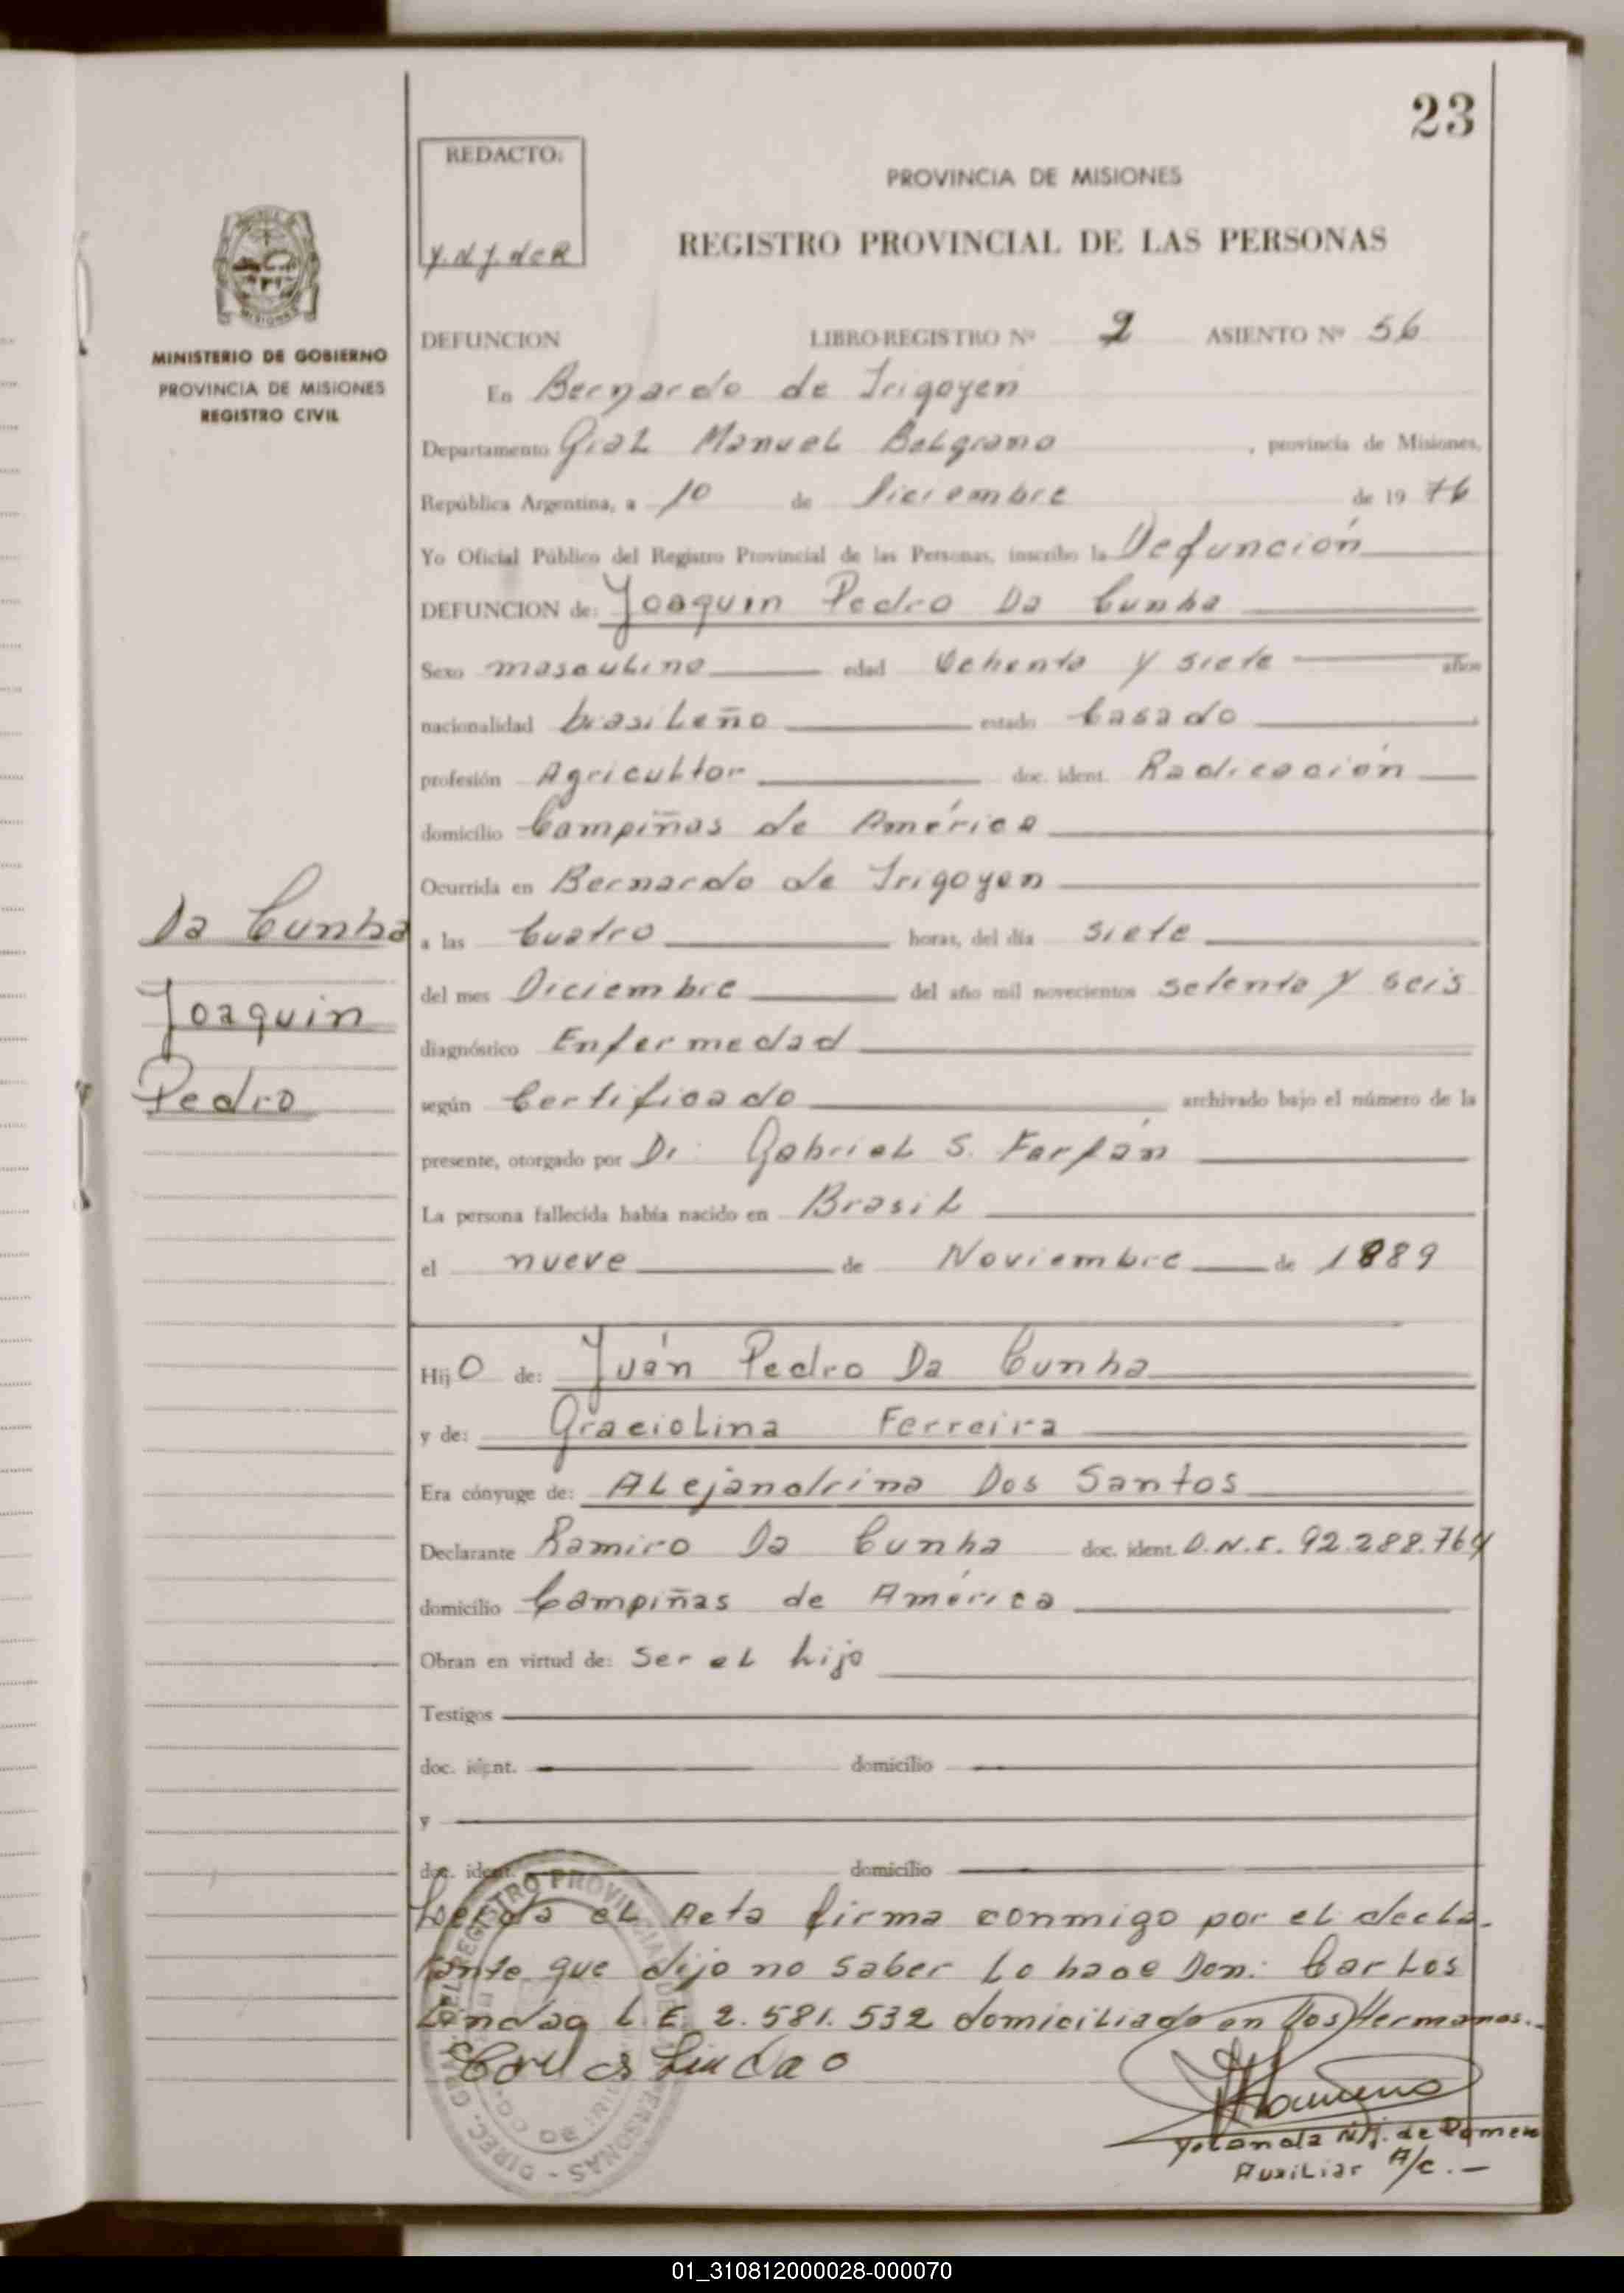 23
REDACTO:
Y.N.J. de R
PROVINCIA DE MISIONES
REGISTRO PROVINCIAL DE LAS PERSONAS
MISIONES
MINISTERIO DE GOBIERNO
PROVINCIA DE MISIONES
REGISTRO CIVIL
DEFUNCION LIBRO-REGISTRO Nº 2 ASIENTO Nº 56
En Bernardo de Irigoyen
Departamento Gral Manuel Belgrano, provincia de Misiones,
República Argentina, a 10 de Diciembre de 1976
Yo Oficial Público del Registro Provincial de las Personas, inscribo la Defunción
DEFUNCION de: Joaquin Pedro Da Cunha
Sexo masculino edad Ochenta y siete años
nacionalidad brasileño estado Casado
profesión Agricultor doc. ident. Radicación
domicilio Campiñas de América
Ocurrida en Bernardo de Irigoyen
Da Cunha
Joaquin
Pedro
a las Cuatro horas, del día siete
del mes Diciembre del año mil novecientos setenta y seis
diagnóstico Enfermedad
según Certificado archivado bajo el número de la
presente, otorgado por Dr. Gabriel S. Farfán
La persona fallecida había nacido en Brasil
el nueve de Noviembre de 1889
Hijo de: Juán Pedro Da Cunha
y de: Graciolina Ferreira
Era cónyuge de: Alejandrina Dos Santos
Declarante Ramiro Da Cunha doc. ident. D.N.I. 92.288.764
domicilio Campiñas de América
Obran en virtud de: Ser el hijo
Testigos
doc. ident. domicilio
y
doc. ident. domicilio
Leída el Acta firma conmigo por el decla-
rante que dijo no saber lo hace Don: Carlos
Lindao L.E. 2.581.532 domiciliado en Dos Hermanas.-
Carlos Lindao
Yolanda N.J. de Romero
Auxiliar A/c.-
01_310812000028-000070